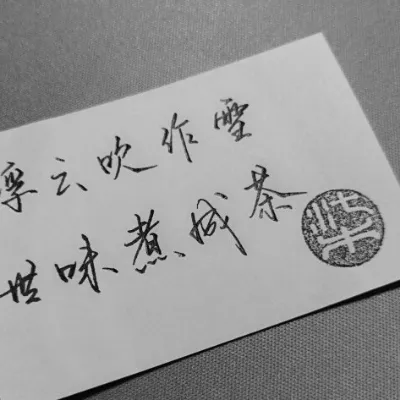 云吹作雪
世味煮成茶